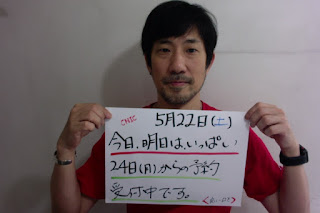 5月22日(土)
今日、明日は、いっぱい
24日(月)からの予約
受付中です。